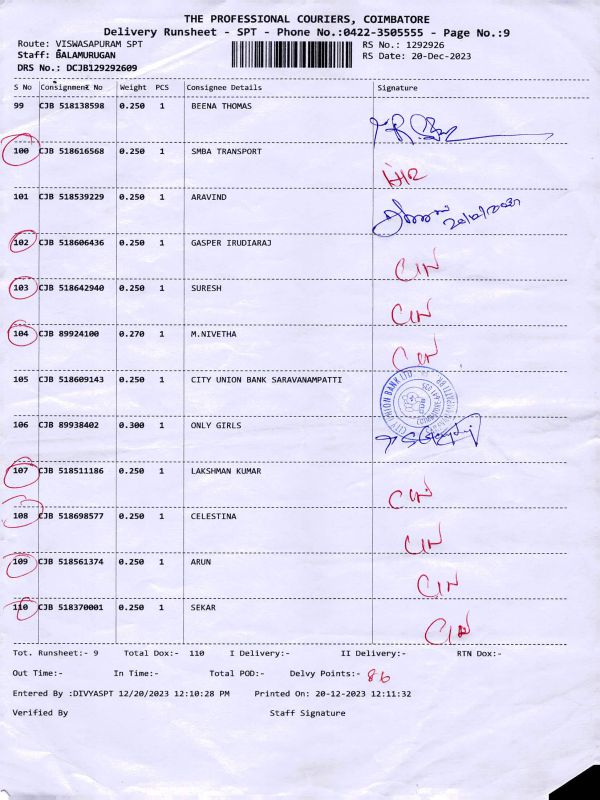 THE PROFESSIONAL COURIERS, COIMBATORE
Delivery Runsheet - SPT - Phone No.:0422-3505555 - Page No.:9
Route: VISWASAPURAM SPT RS No.: 1292926
Staff: BALAMURUGAN RS Date: 20-Dec-2023
DRS No.: DCJB129292609
S No Consignment No Weight PCS Consignee Details Signature
99 CJB 518138598 0.250 1 BEENA THOMAS
100 CJB 518616568 0.250 1 SMBA TRANSPORT
101 CJB 518539229 0.250 1 ARAVIND
20/12/2023
102 CJB 518606436 0.250 1 GASPER IRUDIARAJ
CIN
103 CJB 518642940 0.250 1 SURESH
CIN
104 CJB 89924100 0.270 1 M.NIVETHA
CIN
105 CJB 518609143 0.250 1 CITY UNION BANK SARAVANAMPATTI
CITY UNION BANK LTD.
106 CJB 89938402 0.300 1 ONLY GIRLS
107 CJB 518511186 0.250 1 LAKSHMAN KUMAR
CIN
108 CJB 518698577 0.250 1 CELESTINA
CIN
109 CJB 518561374 0.250 1 ARUN
CIN
110 CJB 518370001 0.250 1 SEKAR
CIN
Tot. Runsheet:- 9 Total Dox:- 110 I Delivery:- II Delivery:- RTN Dox:-
Out Time:- In Time:- Total POD:- Delvy Points:- 86
Entered By :DIVYASPT 12/20/2023 12:10:28 PM Printed On: 20-12-2023 12:11:32
Verified By Staff Signature